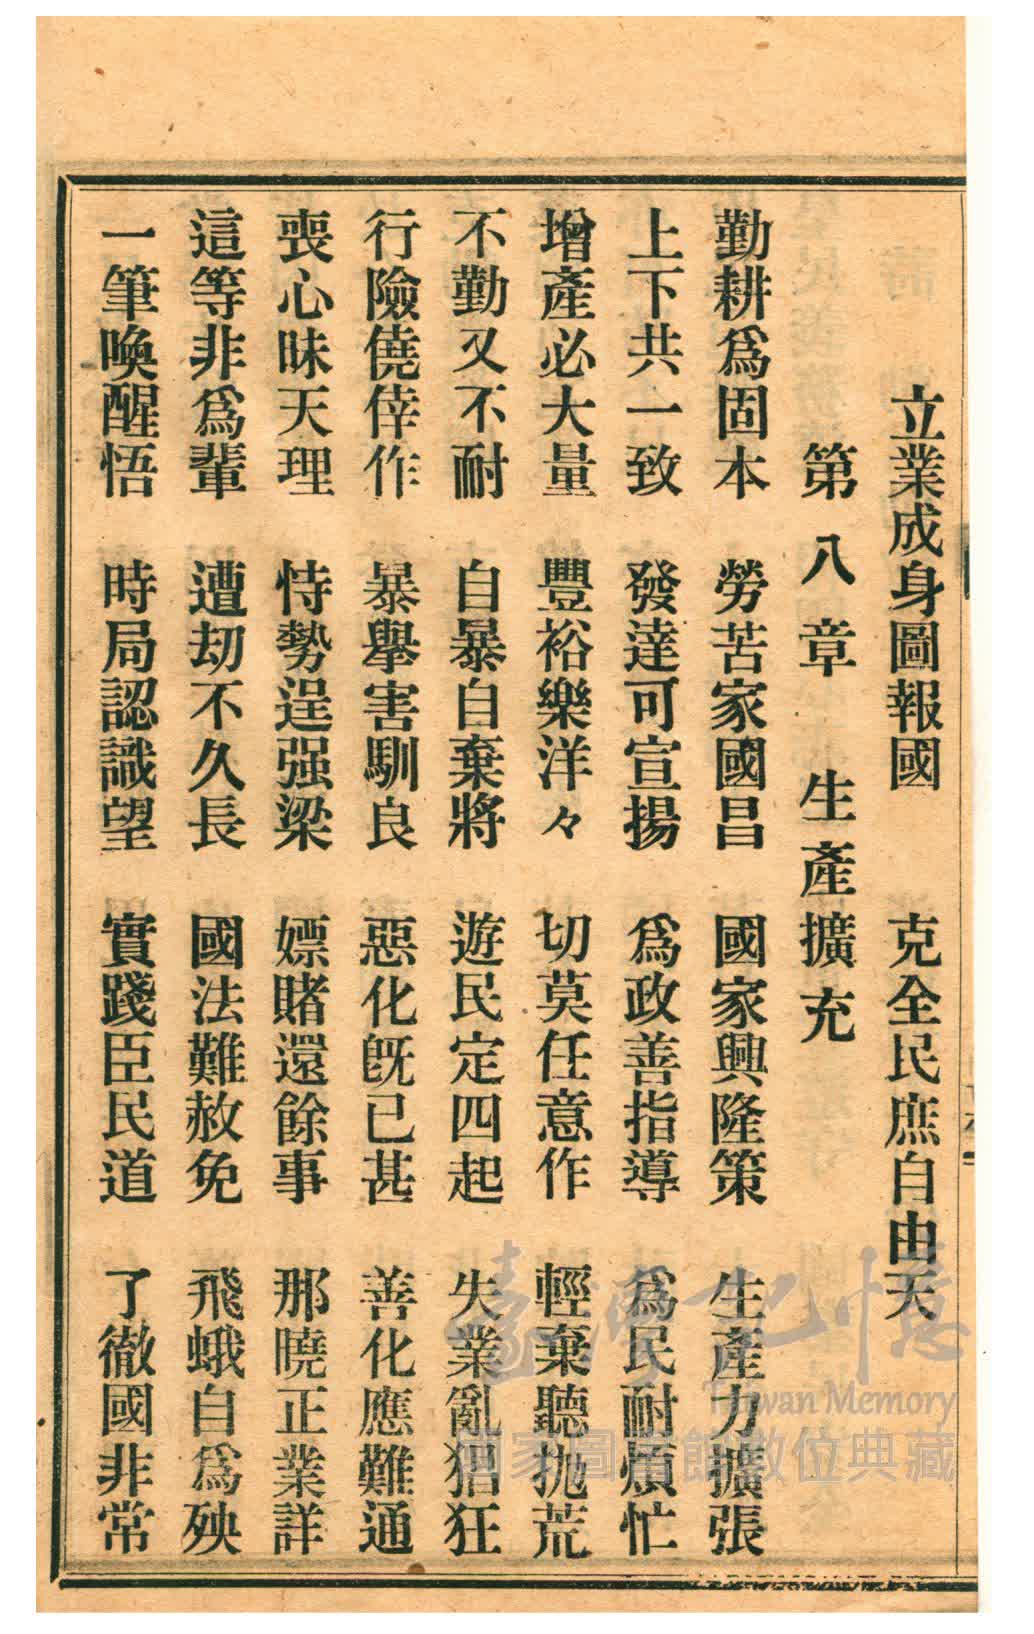 立業成身圖報國　克全民庶自由天
第八章　生產擴充
勤耕爲固本　勞苦家國昌　國家興隆策　生產力擴張
上下共一致　發達可宣揚　爲政善指導　爲民耐煩忙
增產必大量　豐裕樂洋々　切莫任意作　輕棄聽抛荒
不勤又不耐　自暴自棄將　遊民定四起　失業亂猖狂
行險僥倖作　暴舉害馴良　惡化旣已甚　善化應難通
喪心昧天理　恃勢逞强梁　嫖賭還餘事　那曉正業詳
這等非爲輩　遭劫不久長　國法難赦免　飛蛾自爲殃
一筆喚醒悟　時局認識望　實踐臣民道　了徹國非常
臺灣記憶
Taiwan Memory
國家圖書館數位典藏